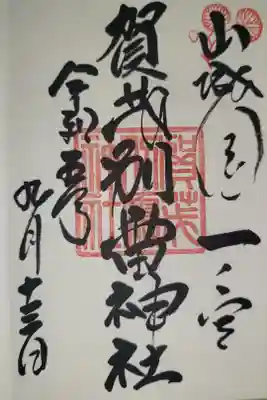 山城国一之宮
賀茂別雷神社
令和五年
九月十三日